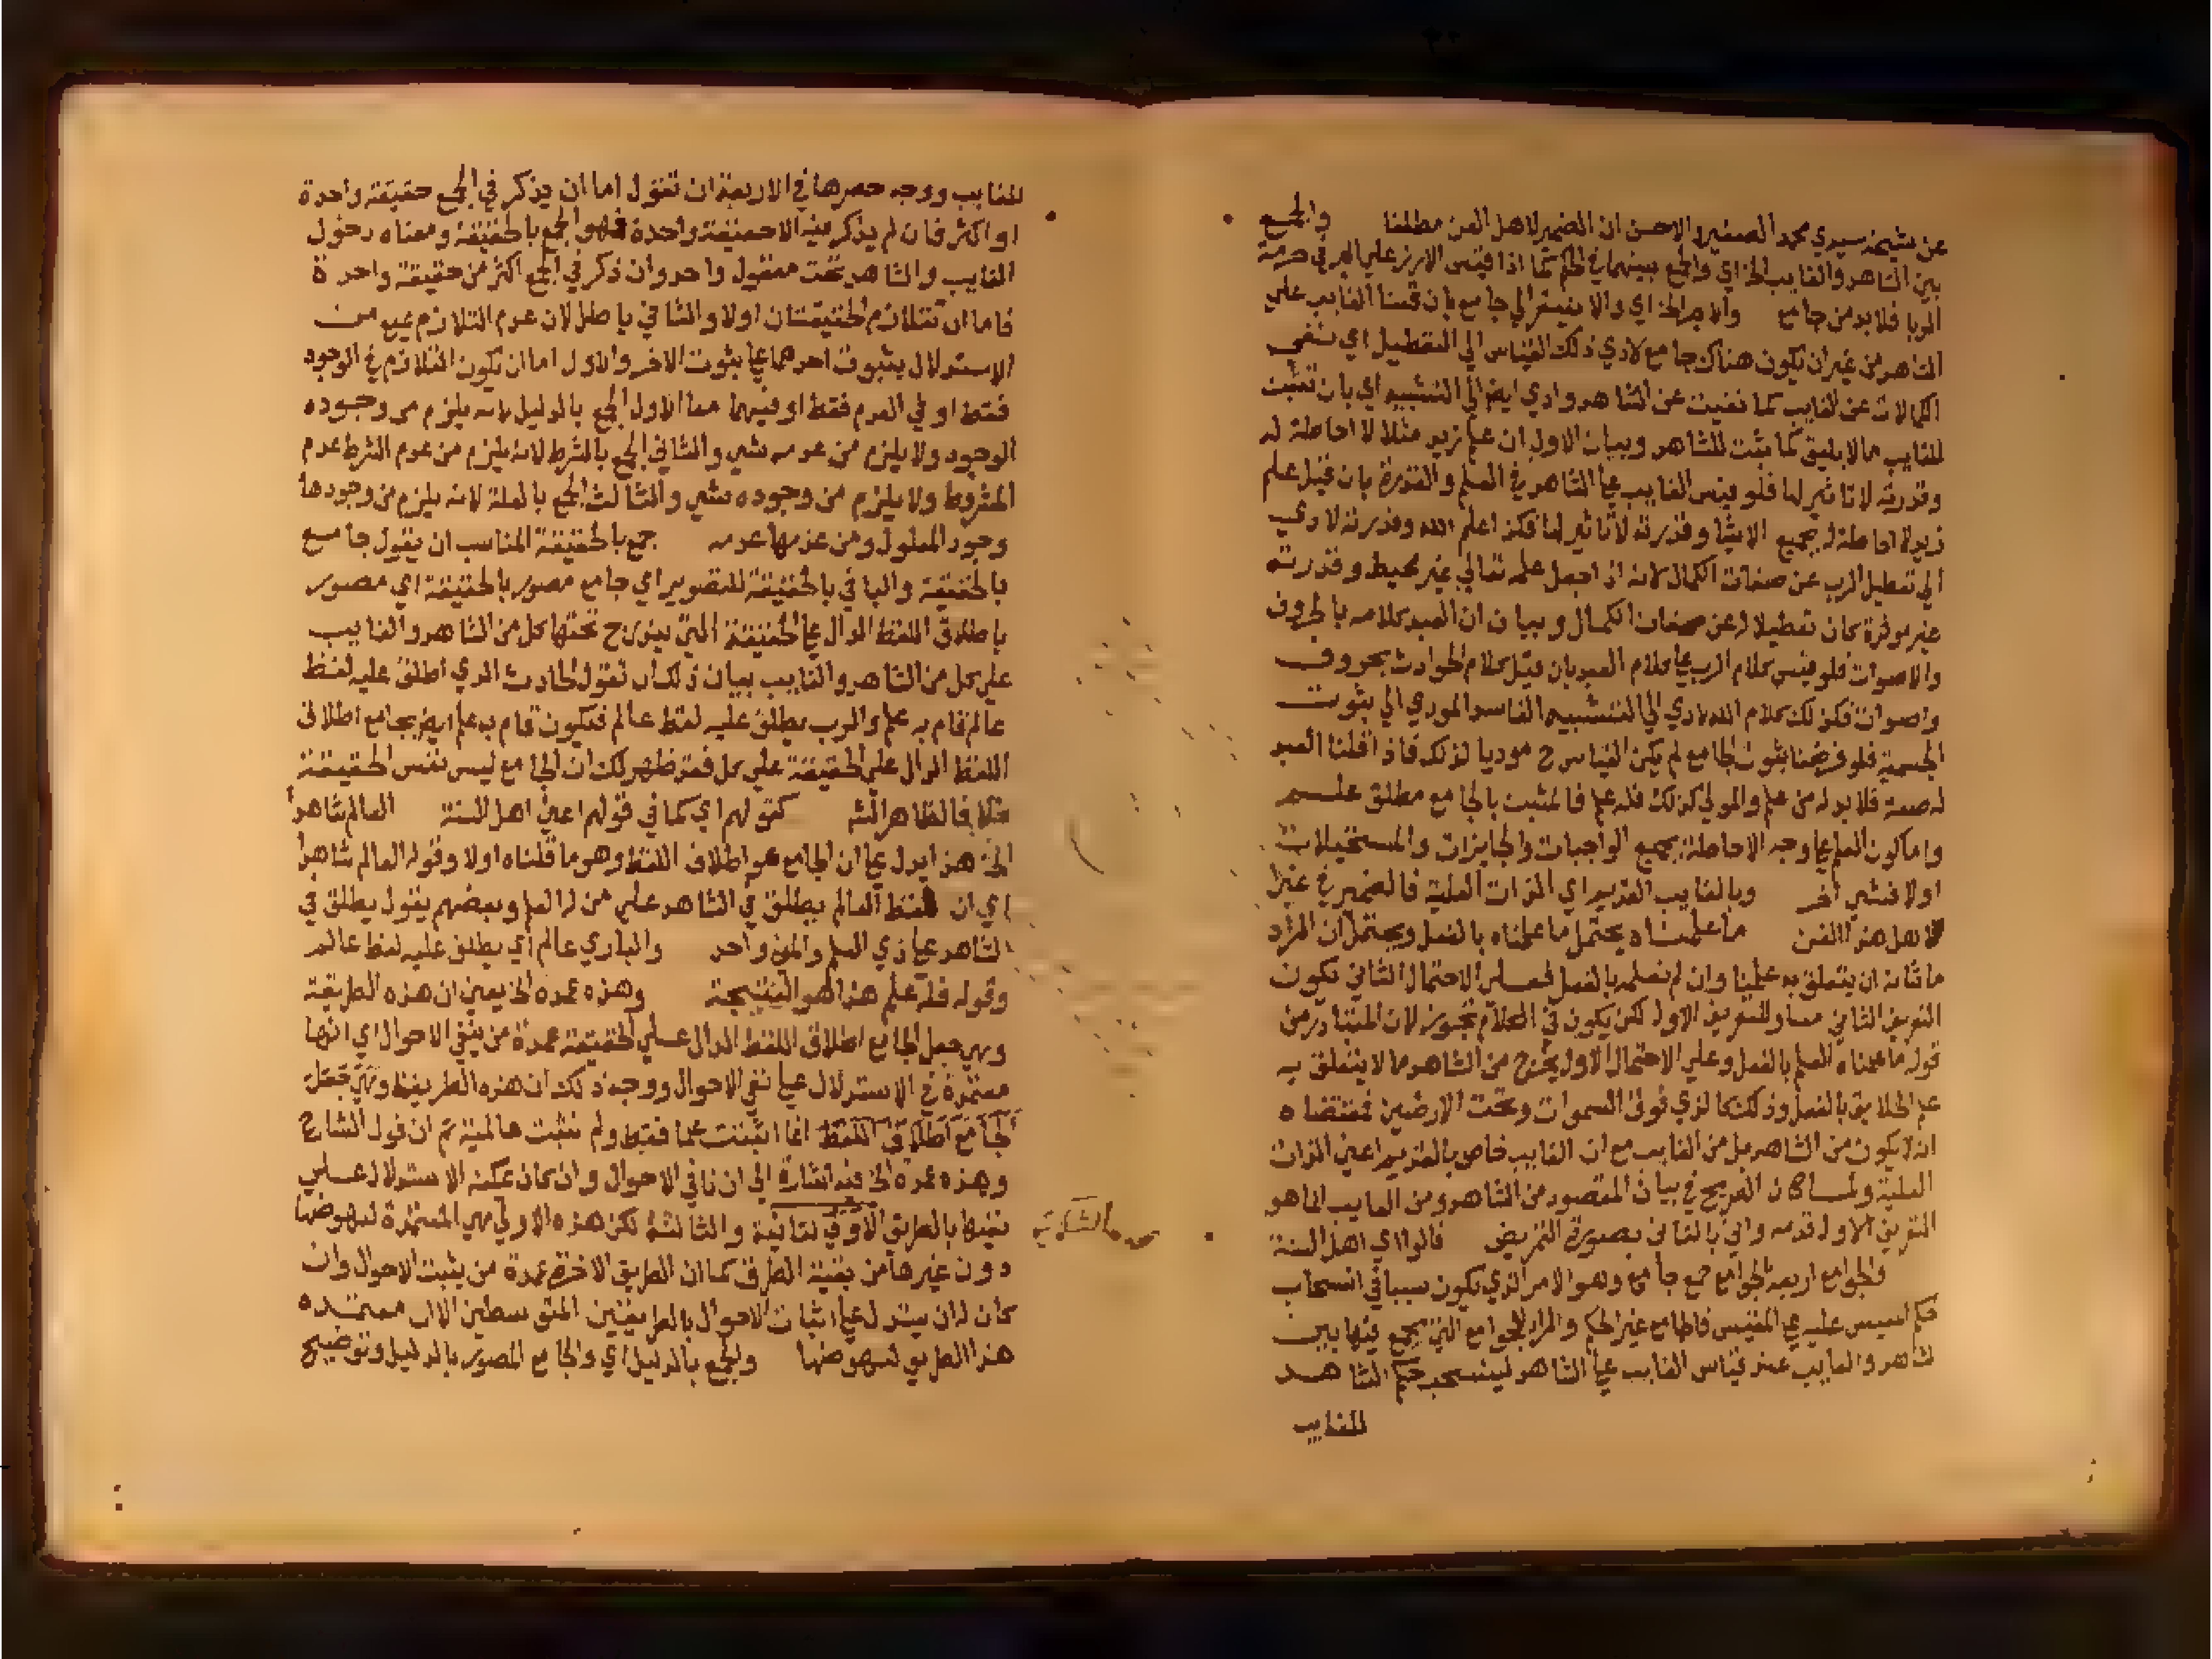 عن شيخه سيدي محمد الصغير والاحسن ان الضمير لاهل الفن مطلقا والجمع
بين الشاهد والغايب الخ اي والجمع بينهما في الحكم كما اذا قيس الارز على البر في حرمة
الربا فلا بد من جامع والا جر الخ اي والا يفتقر الي جامع بان قسنا الغايب علي
الشاهد من غير ان يكون هناك جامع لادي ذلك القياس الي التعطيل اي نفي
الكمالات عن الغايب كما نفيت عن الشاهد وادي ايضا الي التشبيه اي بان تثبت
للغايب ما لا يليق كما يثبت للشاهد وبيان الاول ان علم زيد مثلا لا احاطة له
وقدرته لا تاثير لها فلو قيس الغايب علي الشاهد في العلم والقدرة بان قيل علم
زيد لا احاطة له بجميع الاشيا وقدرته لا تاثير لها فكذا علم الله وقدرته لادي
الي تعطيل الرب عن صفات الكمال لانه اذا جعل علمه تعالي غير محيط وقدرته
غير موثرة كان تعطيلا له عن صفات الكمال وبيان ان العبد كلامه بالحروف
والاصوات فلو قيس كلام الرب علي كلام العبد بان قيل كلام الحوادث بحروف
واصوات فكذلك كلام الله لادي الي التشبيه الفاسد المودي الي ثبوت
الجسمية فلو فرضنا ثبوت الجامع لم يكن القياس ح موديا لذلك فاذا قلنا العبد
له صنعة فلا بد له من علم والمولي كذلك فله علم فالمثبت بالجامع مطلق علم
واما كون العلم علي وجه الاحاطة بجميع الواجبات والجايزات والمستحيلات
اولا فشي اخر وبالغايب القديم اي الذات العلية فالضمير في غير
لاهل هذا الفن ما علمناه يحتمل ما علمناه بالفعل ويحتمل ان المراد
ما شانه ان يتعلق به علمنا وان لم نعلمه بالفعل فعلي الاحتمال الثاني تكون
التعريف الثاني مساو للتعريف الاول لكن يكون في الكلام تجوز لان المتبادر من
قوله ما علمناه العلم بالفعل وعلي الاحتمال الاول يخرج من الشاهد ما لا يتعلق به
علم الخلايق بالفعل وذلك كالذي فوق السموات وتحت الارضين فمقتضاه
انه لا يكون من الشاهد بل من الغايب مع ان الغايب خاص بالقديم اعني الذات
العلية ولما كان الصريح في بيان المقصود من الشاهد ومن الغايب انما هو
التعريف الاول قدمه واتي بالثاني بصورة التمريض قالوا اي اهل السنة
والجوامع اربعة الجوامع جمع جامع وهو الامر الذي يكون سببا في انسحاب
حكم المقيس عليه علي المقيس فالجامع غير الحكم والمراد الجوامع التي يجمع فيها بين
الشاهد والغايب عند قياس الغايب علي الشاهد لينسحب حكم الشاهد
للغايب
للغايب ووجه حصرها في الاربعة ان تقول اما ان يذكر في الجمع حقيقة واحدة
او اكثر فان لم يذكر فيه الا حقيقة واحدة فهو الجمع بالحقيقة ومعناه دخول
الغايب والشاهد تحت معقول واحد وان ذكر في الجمع اكثر من حقيقة واحدة
فاما ان تتلازم الحقيقتان اولا والثاني باطل لان عدم التلازم يمنع من
الاستدلال بثبوت احدهما علي ثبوت الاخر والاول اما ان يكون التلازم في الوجود
فقط او في العدم فقط او فيهما معا الاول الجمع بالدليل لانه يلزم من وجوده
الوجود ولا يلزم من عدمه شي والثاني الجمع بالشرط لانه يلزم من عدم الشرط عدم
المشروط ولا يلزم من وجوده شي والثالث الجمع بالعلة لانه يلزم من وجودها
وجود المعلول ومن عدمها عدمه جمع بالحقيقة المناسب ان يقول جامع
بالحقيقة والبا في بالحقيقة للتصوير اي جامع مصور بالحقيقة اي مصور
باطلاق اللفظ الدال علي الحقيقة التي يندرج تحتها كل من الشاهد والغايب
علي كل من الشاهد والغايب بيان ذلك ان تقول الحادث الذي اطلق عليه لفظ
عالم قام به علم والرب يطلق عليه لفظ عالم فيكون قام به علم ايضا بجامع اطلاق
اللفظ الدال علي الحقيقة علي كل فقد ظهر لك ان الجامع ليس نفس الحقيقة
خلافا لظاهر الش كقولهم اي كما في قولهم اعني اهل السنة العالم شاهدا
الخ هذا يدل علي ان الجامع هو اطلاق اللفظ وهو ما قلناه اولا وقوله العالم شاهدا
اي ان لفظ العالم يطلق في الشاهد علي من له العلم وبعضهم يقول يطلق في
الشاهد علي ذي العلم والمعني واحد والباري عالم اي يطلق عليه لفظ عالم
وقوله فله علم هذا هو النتيجة وهذه عمدة الخ يعني ان هذه الطريقة
وهي جعل الجامع اطلاق اللفظ الدال علي الحقيقة عمدة من ينفي الاحوال اي انها
معتمدة في الاستدلال علي نفي الاحوال ووجه ذلك ان هذه الطريقة وهي جعل
الجامع اطلاق اللفظ انما اثبتت علما فقط ولم تثبت عالمية ثم ان قول الشارح
وهذه عمدة الخ فيه اشارة الي ان نافي الاحوال وان كان يمكنه الاستدلال علي
نفيها بالطريق الثانية والثالثة لكن هذه الاولي هي المعتمدة لسهولتها
دون غيرها من بقية الطرق كما ان الطريق الاخرة عمدة من يثبت الاحوال وان
كان له ان يستدل علي اثبات الاحوال بالطريقتين المتوسطتين الا ان معتمده
هذا الطريق لسهولتها والجمع بالدليل اي والجامع المصور بالدليل وتوضيح